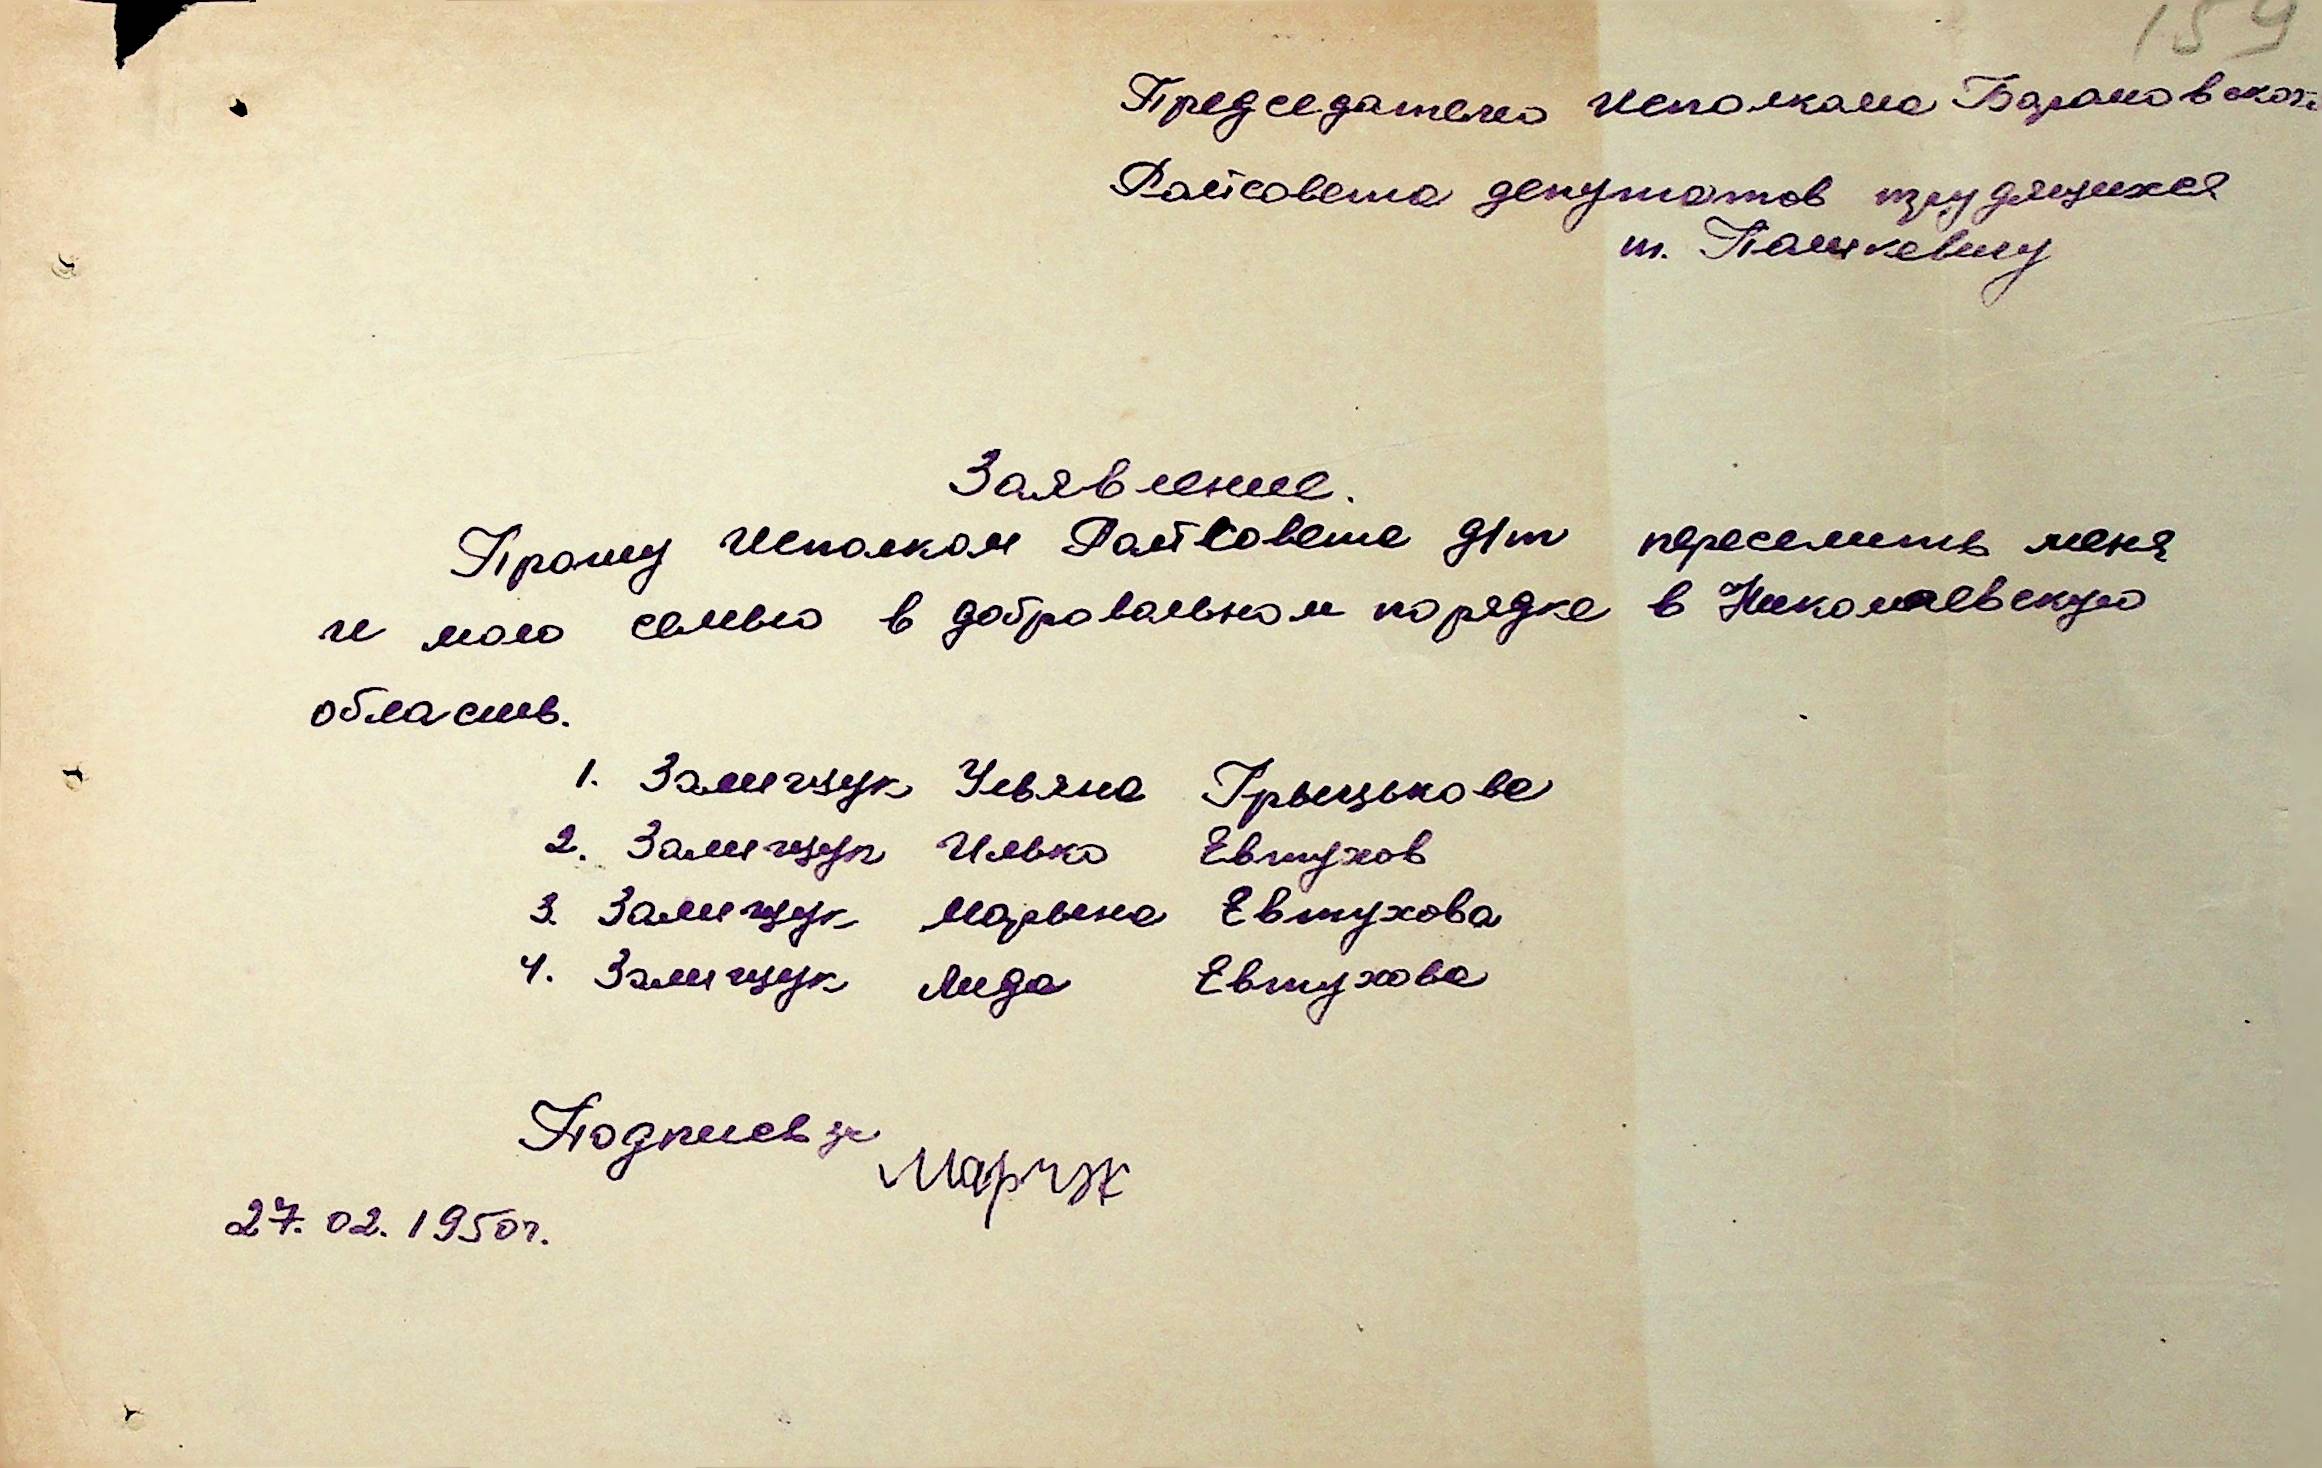 159
Председателю Исполкома Барановского
Райсовета депутатов трудящихся
т. Пашкевичу
Заявление.
Прошу Исполком Райсовета д/т переселить меня
и мою семью в добровальном порядке в Николаевскую
область.
1. Замищук Ульяна Грыцькова
2. Замищук Илько Евтухов
3. Замищук Марына Евтухова
4. Замищук Лида Евтухова
Подпись за
Марчук
27.02.1950г.